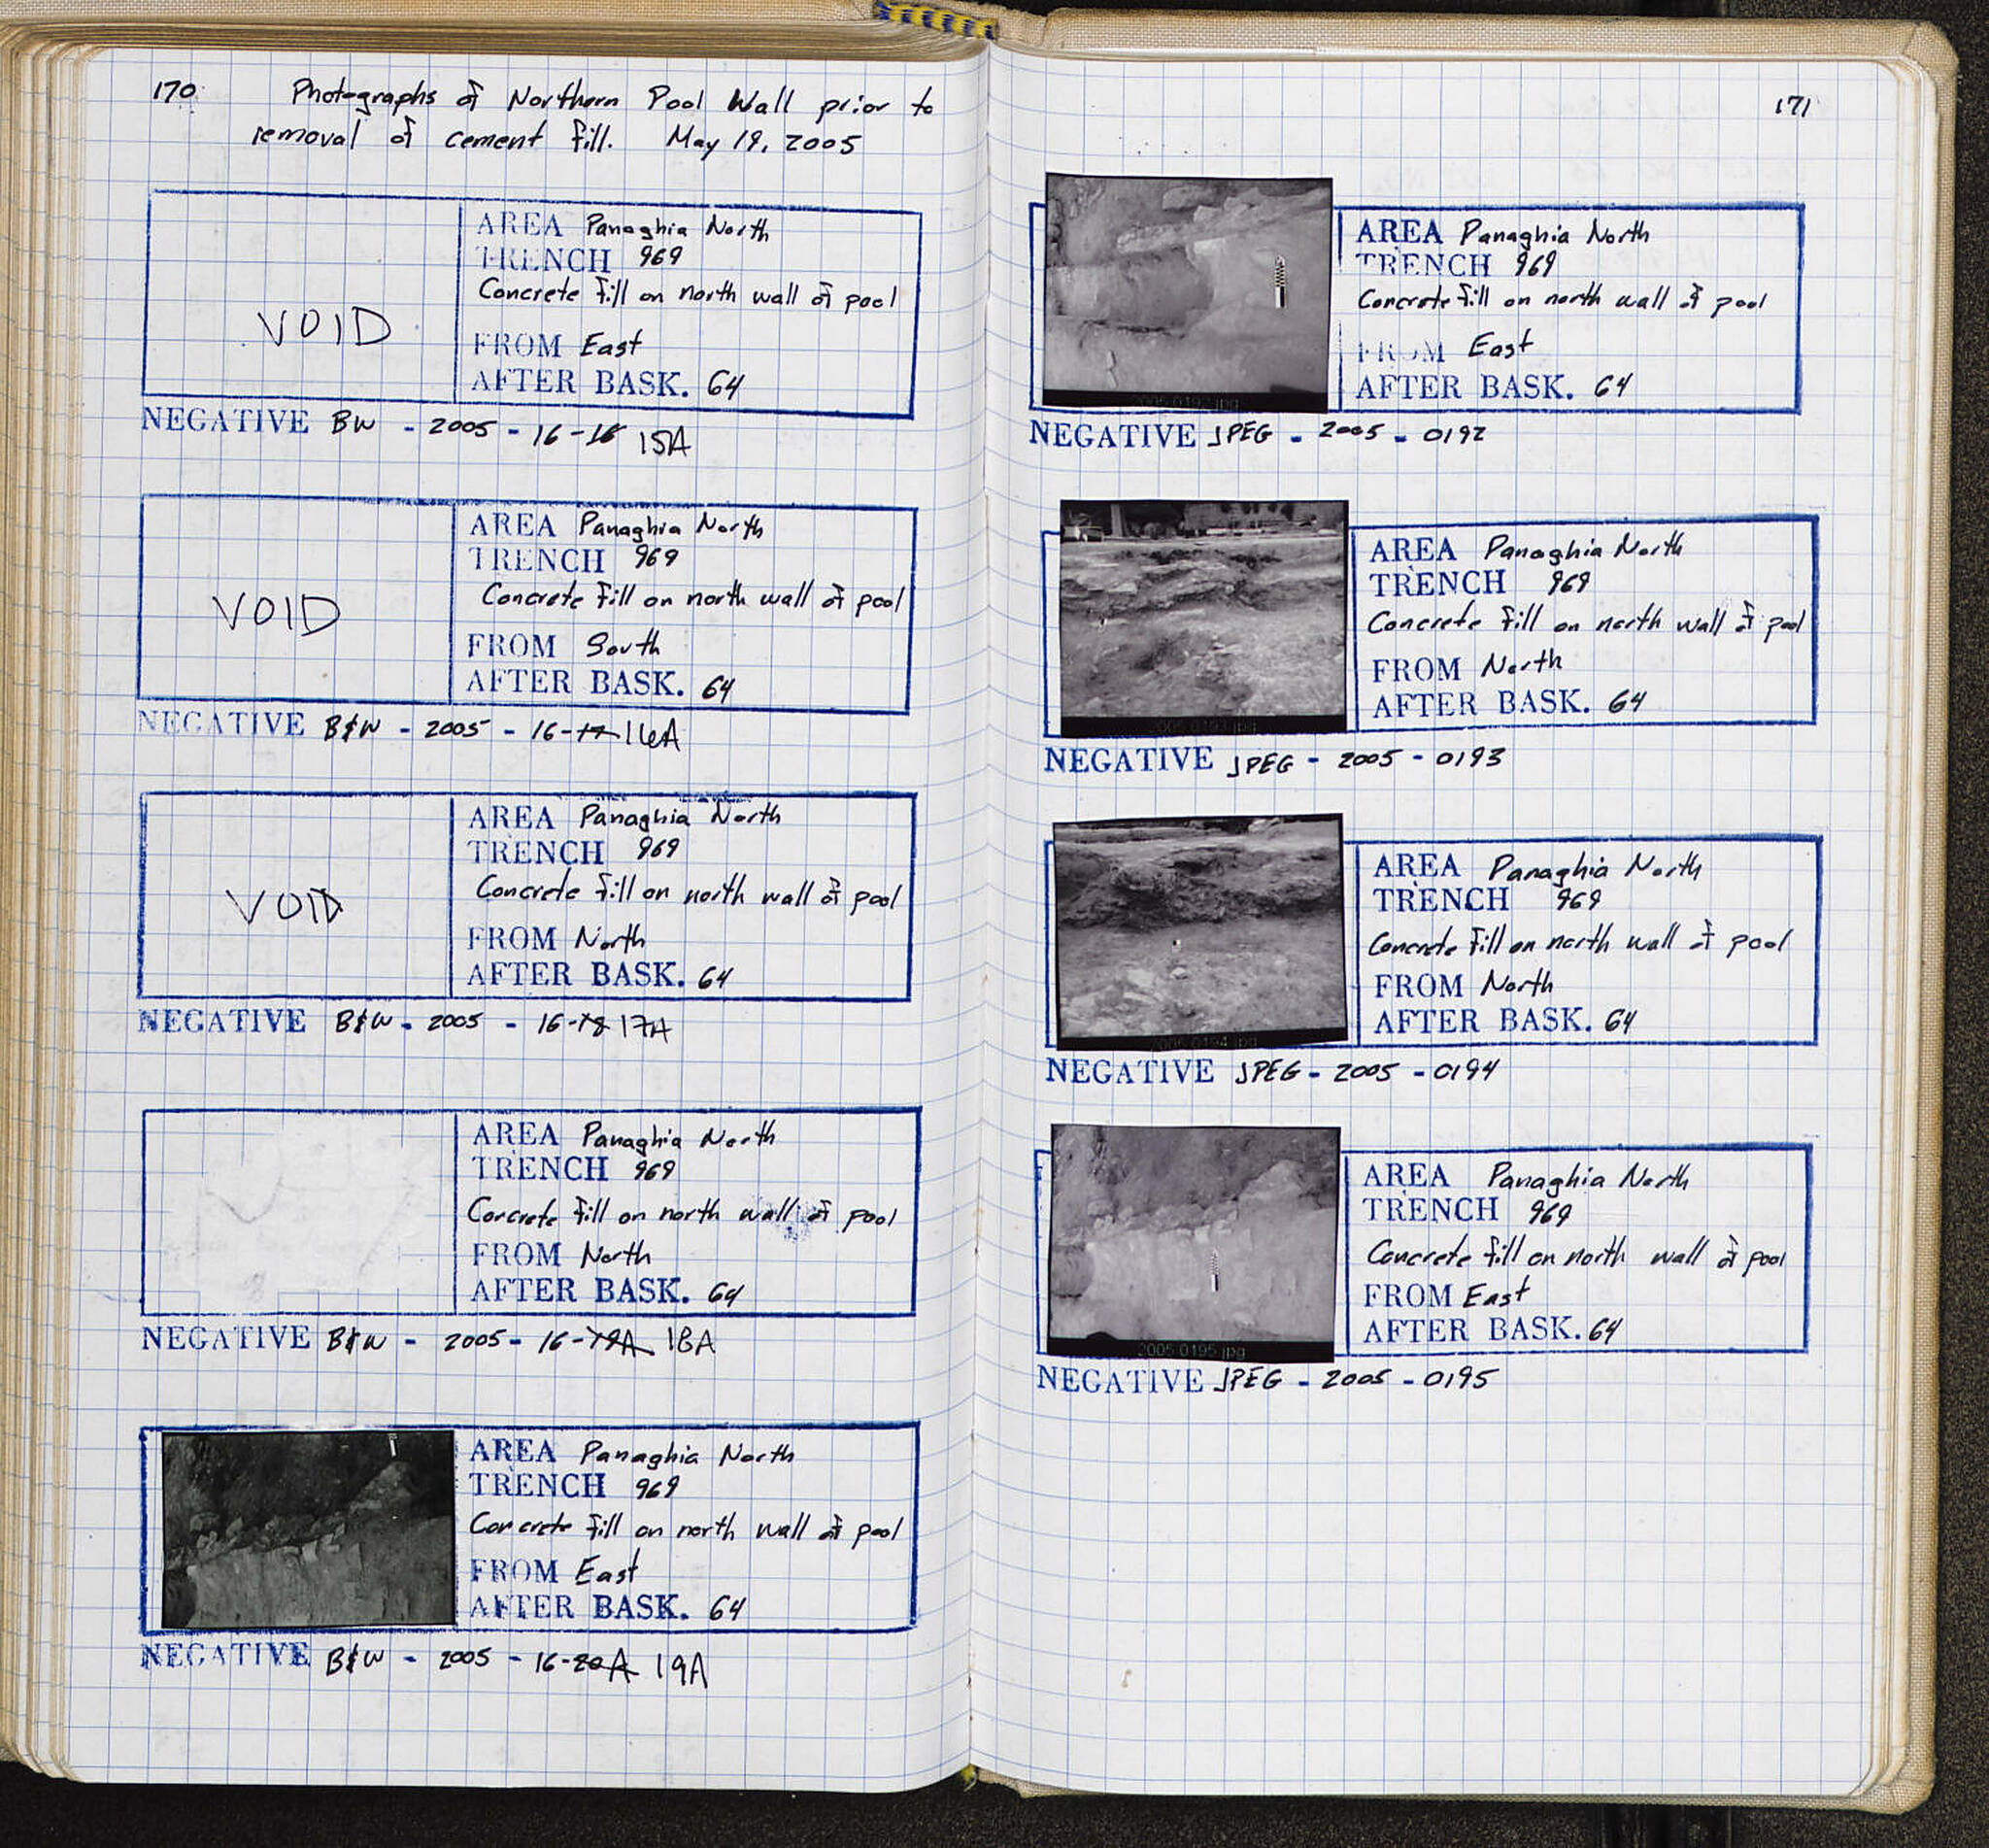 170 Photographs of Northern Pool Wall prior to
removal of cement fill. May 19, 2005
VOID
AREA Panaghia North
TRENCH 969
Concrete fill on north wall of pool
FROM East
AFTER BASK. 64
NEGATIVE BW - 2005 - 16-16 15A
VOID
AREA Panaghia North
TRENCH 969
Concrete fill on north wall of pool
FROM South
AFTER BASK. 64
NEGATIVE B&W - 2005 - 16-17 16A
VOID
AREA Panaghia North
TRENCH 969
Concrete fill on north wall of pool
FROM North
AFTER BASK. 64
NEGATIVE B&W - 2005 - 16-18 17A
AREA Panaghia North
TRENCH 969
Concrete fill on north wall of pool
FROM North
AFTER BASK. 64
NEGATIVE B&W - 2005 - 16-19A 18A
AREA Panaghia North
TRENCH 969
Concrete fill on north wall of pool
FROM East
AFTER BASK. 64
NEGATIVE B&W - 2005 - 16-20A 19A
171
AREA Panaghia North
TRENCH 969
Concrete fill on north wall of pool
FROM East
AFTER BASK. 64
2005 0192.jpg
NEGATIVE JPEG - 2005 - 0192
AREA Panaghia North
TRENCH 969
Concrete fill on north wall of pool
FROM North
AFTER BASK. 64
2005 0193.jpg
NEGATIVE JPEG - 2005 - 0193
AREA Panaghia North
TRENCH 969
Concrete fill on north wall of pool
FROM North
AFTER BASK. 64
2005 0194.jpg
NEGATIVE JPEG - 2005 - 0194
AREA Panaghia North
TRENCH 969
Concrete fill on north wall of pool
FROM East
AFTER BASK. 64
2005 0195.jpg
NEGATIVE JPEG - 2005 - 0195